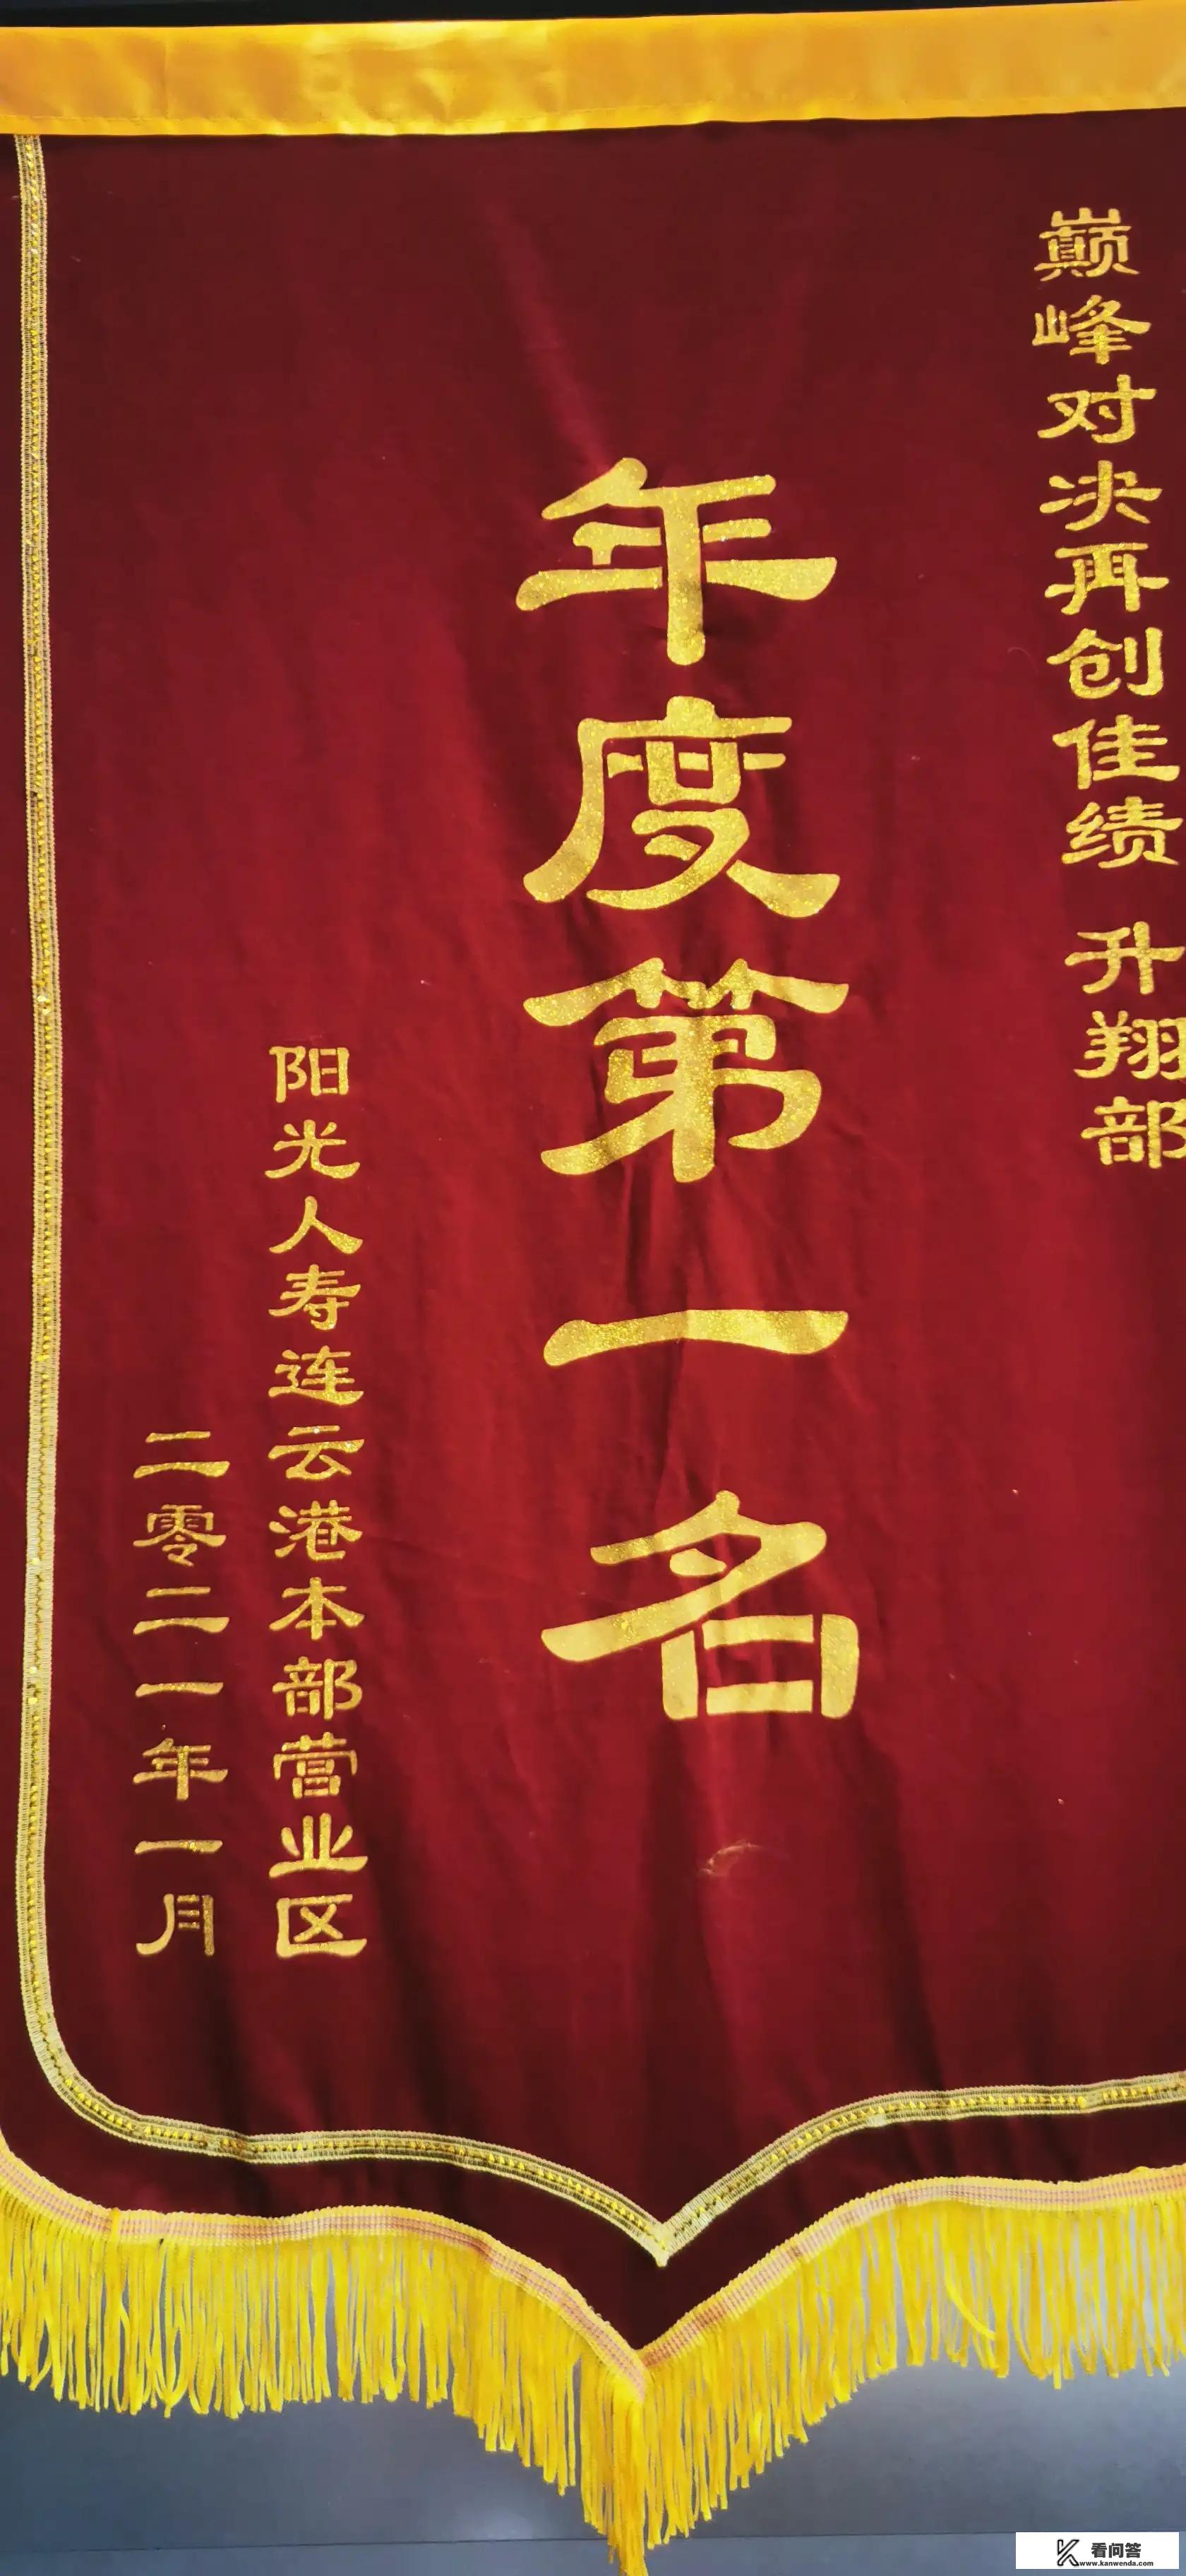 巅峰对决再创佳绩 升翔部
年度第一名
阳光人寿连云港本部营业区
二零二一年一月
看问答
www.kanwenda.com